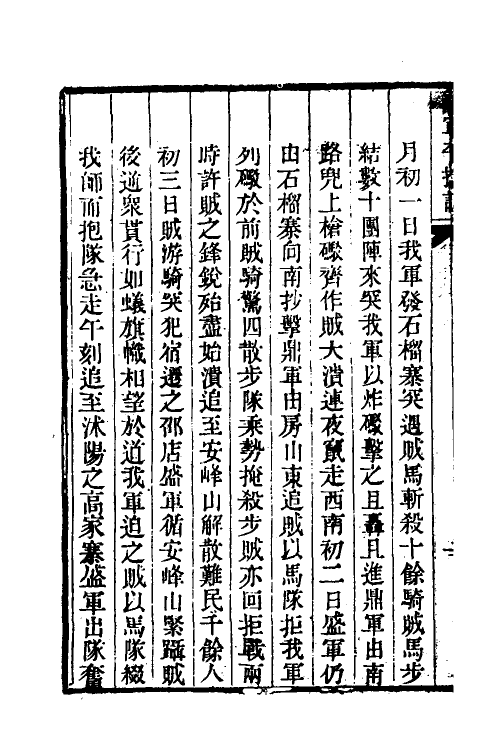 月初一日我軍發石榴寨突遇賊馬斬殺十餘騎賊馬步
結數十團陣來突我軍以炸礮擊之且轟且進鼎軍由南
路兜上槍礮齊作賊大潰連夜竄走西南初二日盛軍仍
由石榴寨向南抄擊鼎軍由房山東追賊以馬隊拒我軍
列礮於前賊騎驚四散步隊乘勢掩殺步賊亦回拒戰兩
時許賊之鋒銳殆盡始潰追至安峰山解散難民千餘人
初三日賊游騎突犯宿遷之邵店盛軍循安峰山緊躡賊
後逆衆貫行如蟻旗幟相望於道我軍迫之賊以馬隊綴
我師而抱隊急走午刻追至沭陽之高家寨盛軍出隊奮